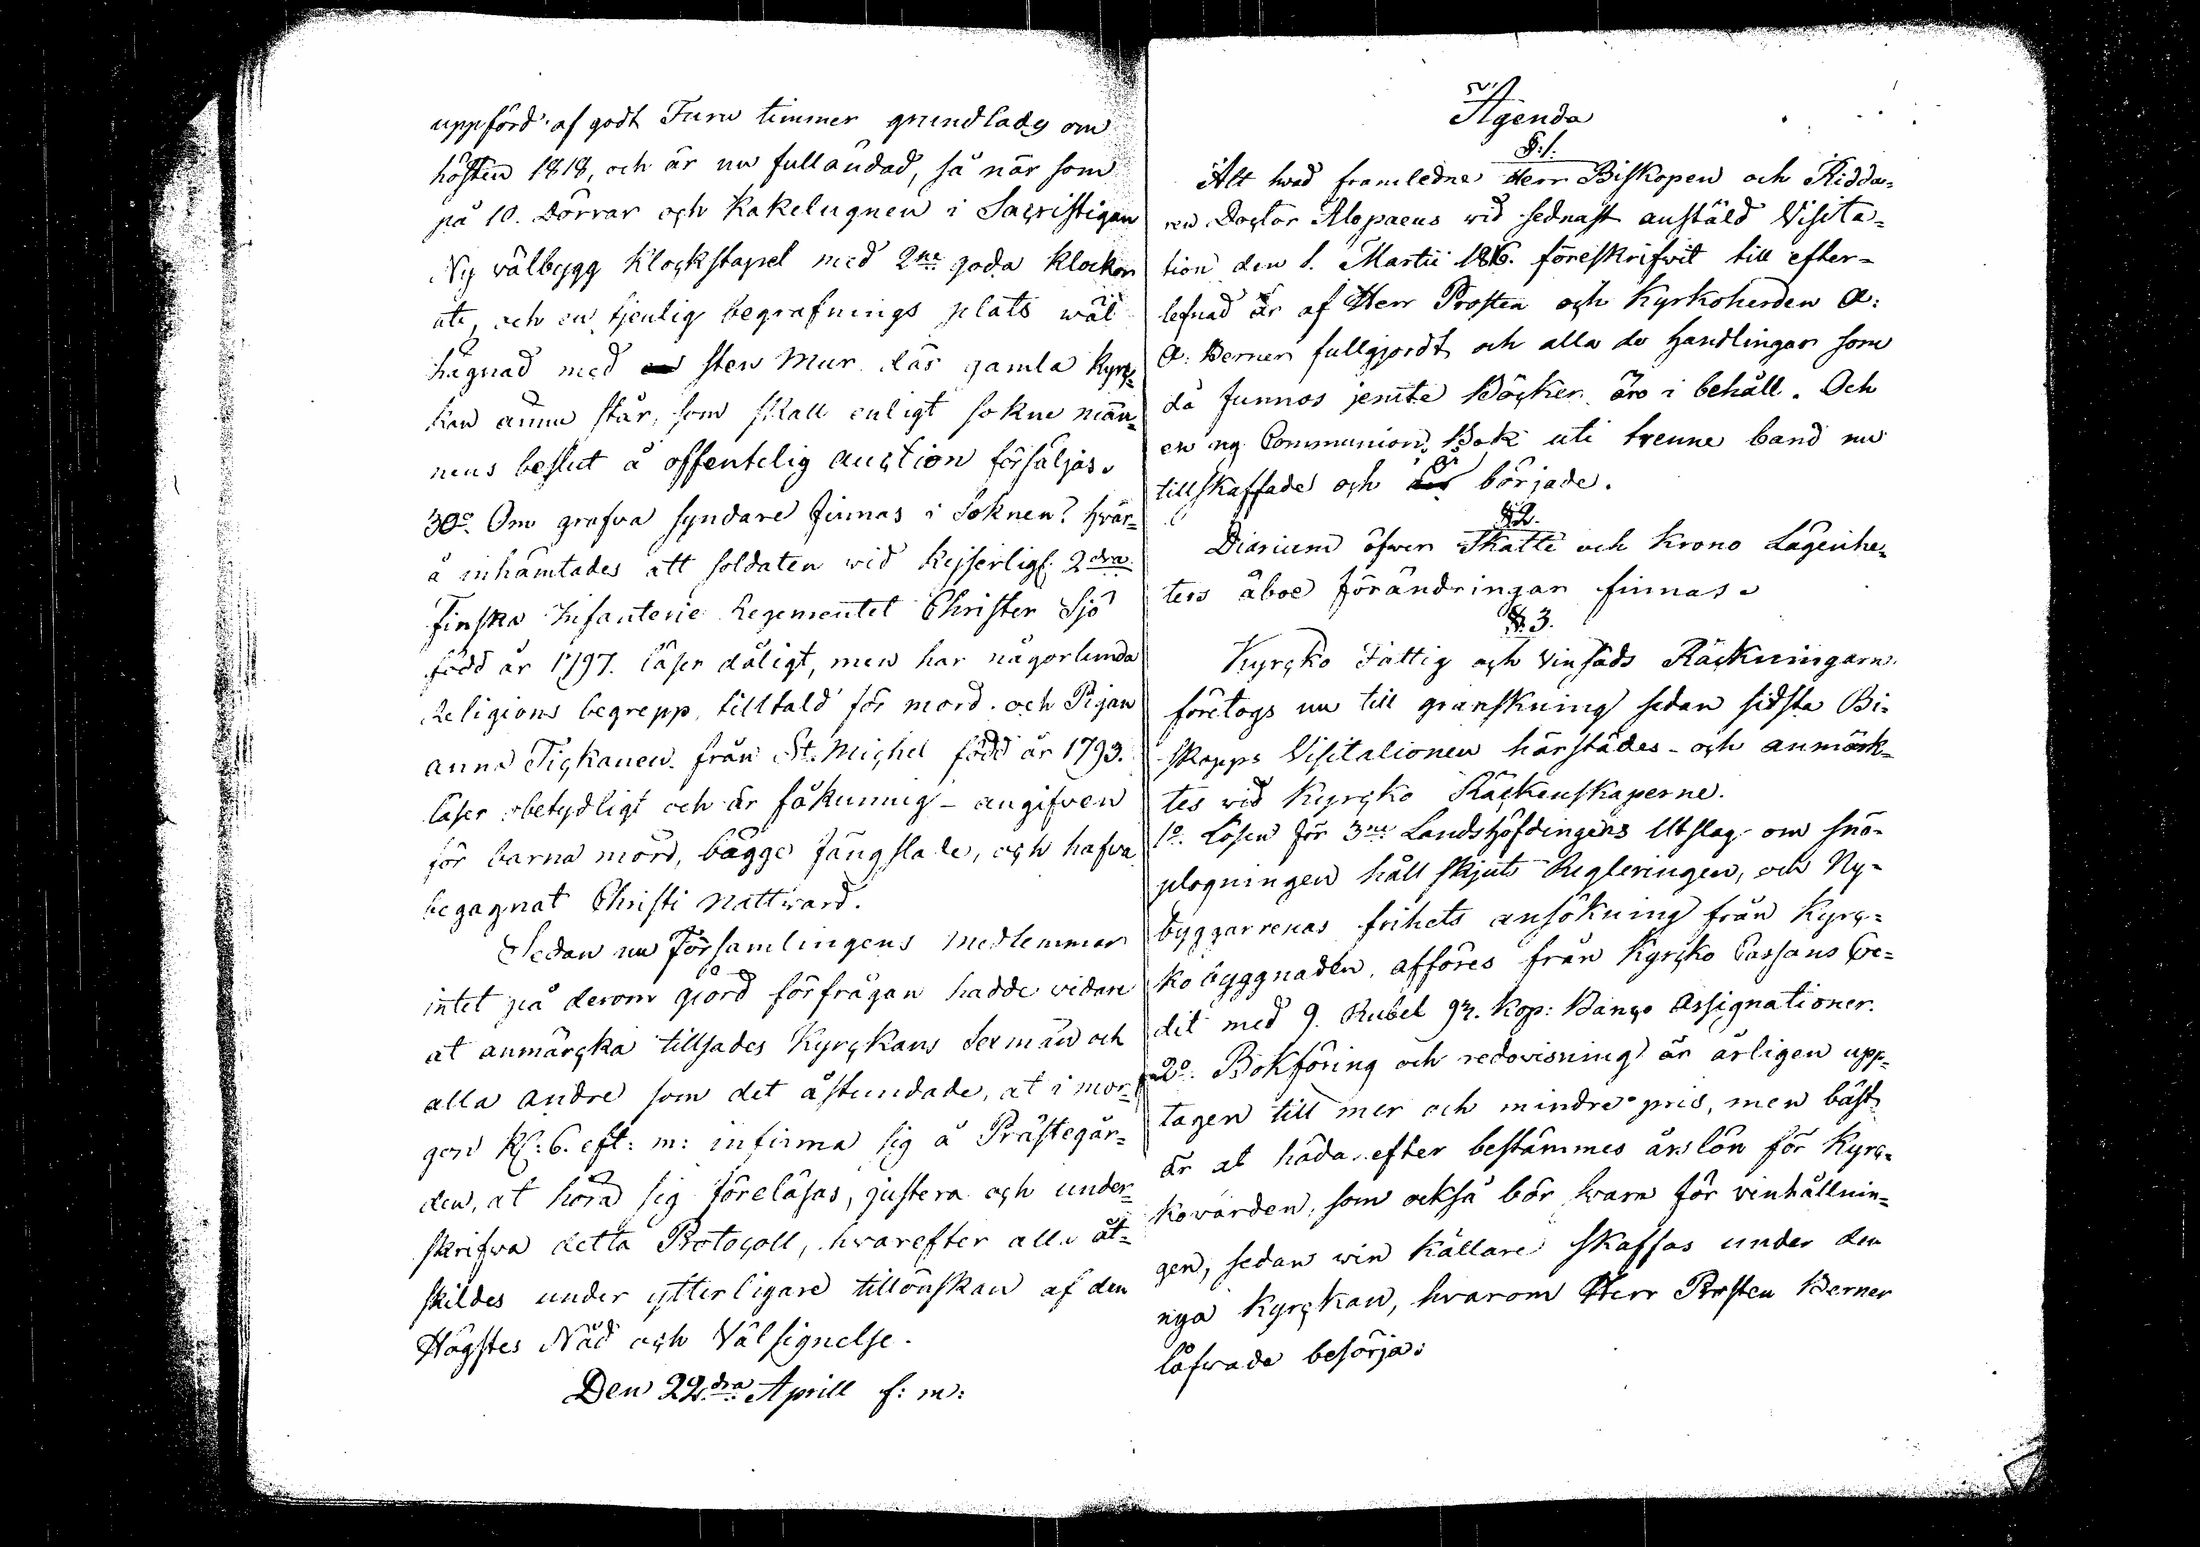 uppförd af godt Furu timmer grundlades om
hösten 1818, och är nu fulländad, så när som
på 10. Dörrar och Kakelugnen i Sacristigan
Ny välbygg Klockstapel med 2ne goda Klockor
uti, och en tjenlig begrafnings plats wäl
hägnad med sten Mur där gamla Kyrc-
kan ännu står, som skall enligt sokne män-
nens beslut å offentelig auction försäljas.
30o. Om grofva syndare finnas i Soknen? hvar-
å inhämtades att soldaten wid Kejserlige 2dra
Finska Infanterie Regementet Christer Sjö
född år 1797. läser dåligt, men har någorlunda
Religions begrepp, tilltald för mord. och Pigan
anna Tickanen från St. Michel född år 1793.
läser obetydligt och är fåkunnig – angifven
för barna mord, bägge fängslade, och hafva
begagnat Christi Nattward.
Sedan nu Församlingens medlemmar
intet på derom gjord förfrågan hadde vidare
at anmärcka tillsades Kyrckans Sexmän och
alla andre som det åstundade, at i mor-
gon Kl: 6. eft: m: infinna sig å Prästegår-
den, at höra sig föreläsas, justera och under-
skrifva detta Protocoll, hvarefter alla åt-
skildes under ytterligare tillönskan af den
Högstes Nåd och Välsignelse.
Den 22dra Aprill f: m:
Agenda
§. 1.
Alt hvad framledne Herr Biskopen och Ridda-
ren Doctor Alopaeus vid sednast anstäld Visita-
tion den 1. Martii 1816. föreskrifvit till efter-
lefnad är af Herr Prosten och Kyrkoherden A:
A: Berner fullgjordt, och alla de handlingar som
då funnos jemte Böcker äro i behåll. Och
en ny Communions Bok uti trenne band nu
tillskaffade och är började.
§ 2.
Diarium öfwer Skatte och Krono Lägenhe-
ters åboe förändringar finnas.
§. 3.
Kyrcko Fattig och vinsäds Räckningarne
företogs nu till granskning sedan sidsta Bi-
skopps Visitationen härstädes – och anmärk-
tes vid Kyrcko Räckenskaperne.
1o. Lösen för 3ne Landshöfdingens Utslag om snö-
plogningen håll skjuts Regleringen, och Ny-
byggarrenas frihets ansökning från Kyrc-
ko byggnaden, afföres från Kyrcko Cassans Cre-
dit med 9. Rubel 92. Kop: Banco Assignationer.
2o. Bokföring och redovisning är årligen upp-
tagen till mer och mindre pris, men bäst
är at hädanefter bestämmes årslön för Kyrc-
kovärden, som också bör svara för vinhållnin-
gen, sedan win källare skaffas under den
nya Kyrckan, hvarom Herr Prosten Berner
låfvade besörja: